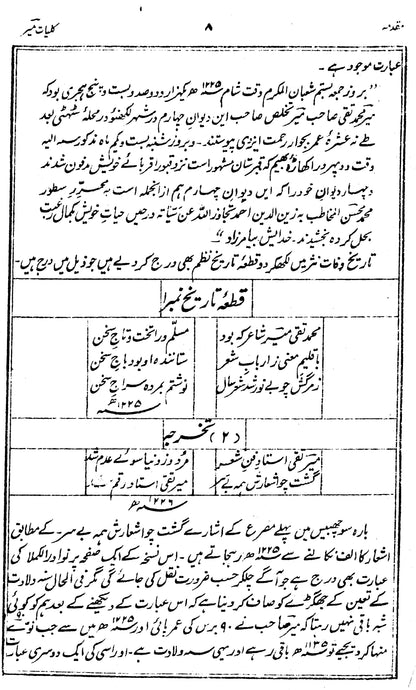 مقدمہ ۸ کلیات میرؔ
عبارت موجود ہے۔
"بروز جمعہ بستم شعبان المکرم وقت شام ۱۲۲۵ھ یکہزار و دو صد و بست و پنج ہجری بود کہ
میر محمد تقی صاحب میرؔ تخلص صاحب ایں دیوانِ چہارم در شہر لکھنؤ در محلہ سٹہٹی بعد
طے نہ عشرۂ عمر بجوار رحمت ایزدی پیوستند۔ و بروز شنبہ بست و یکم ماہ مذکور سنہ الیہ
وقت دوپہر در اکھاڑہ بھیم کہ قبرستان مشہور است نزد قبور اقربائے خویش مدفون شدند
و چہار دیوان خود را کہ ایں دیوان چہارم ہم از انجملہ است بمحرر سطور
محمد محسن المخاطب بہ زین الدین احمد تجاوز اللہ عن سیأتہ در عین حیات خویش بکمال رغبت
بحل کردہ بخشیدند۔ خدایش بیامرزاد"
تاریخ وفات نثر میں لکھکر دو قطعہ تاریخ نظم بھی درج کر دیے ہیں جو ذیل میں درج ہیں۔
قطعۂ تاریخ نمبر۱
محمد تقی میرؔ شاعر کہ بود مسلّم ورا تخت و تاج سخن
باقلیم معنی ز ارباب شعر ستانندہ او بود باج سخن
ز مرگش چو بے نور شد شعر سال نوشتم بمردہ سراج سخن
۱۲۲۵ھ
(۲) تخرجہ
میرؔ تقی استاد فن شعر مرد و ز دنیا سوئے عدم شد
گشت چو اشعارش ہمہ بے سر میرؔ تقی استاد رقم شد
۱۲۲۶ھ
بارہ سو چھبیس میں پہلے مصرع کے اشارے گشت چو اشعارش ہمہ بے سر۔ کے مطابق
اشعار کا الف نکالنے سے ۱۲۲۵ھ رہجاتے ہیں۔ اس نسخہ کے ایک صفحہ پر نوادر الکملا کی
عبارت بھی درج ہے جو آگے چلکر حسب ضرورت نقل کی جائے گی مگر فی الحال سنہ ولادت
کے تعین کے جھگڑے کو صاف کر دینا ہے کہ اس عبارت کے دیکھنے کے بعد ہم کو کوئی
شبہ باقی نہیں رہتا کہ میرؔ صاحب نے ۹۰ برس کی عمر پائی اور ۱۲۲۵ھ میں سے جب نوے
منہا کر دیجیے تو ۱۱۳۵ھ باقی رہے اور یہی سنہ ولادت ہے۔ اور اسی کی ایک دوسری عبارت